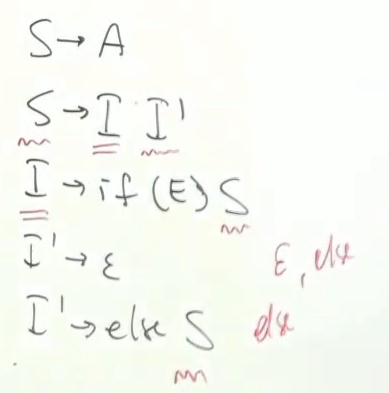 S → A
S → I I'
I → if (E) S
I' → ε ε, else
I' → else S else